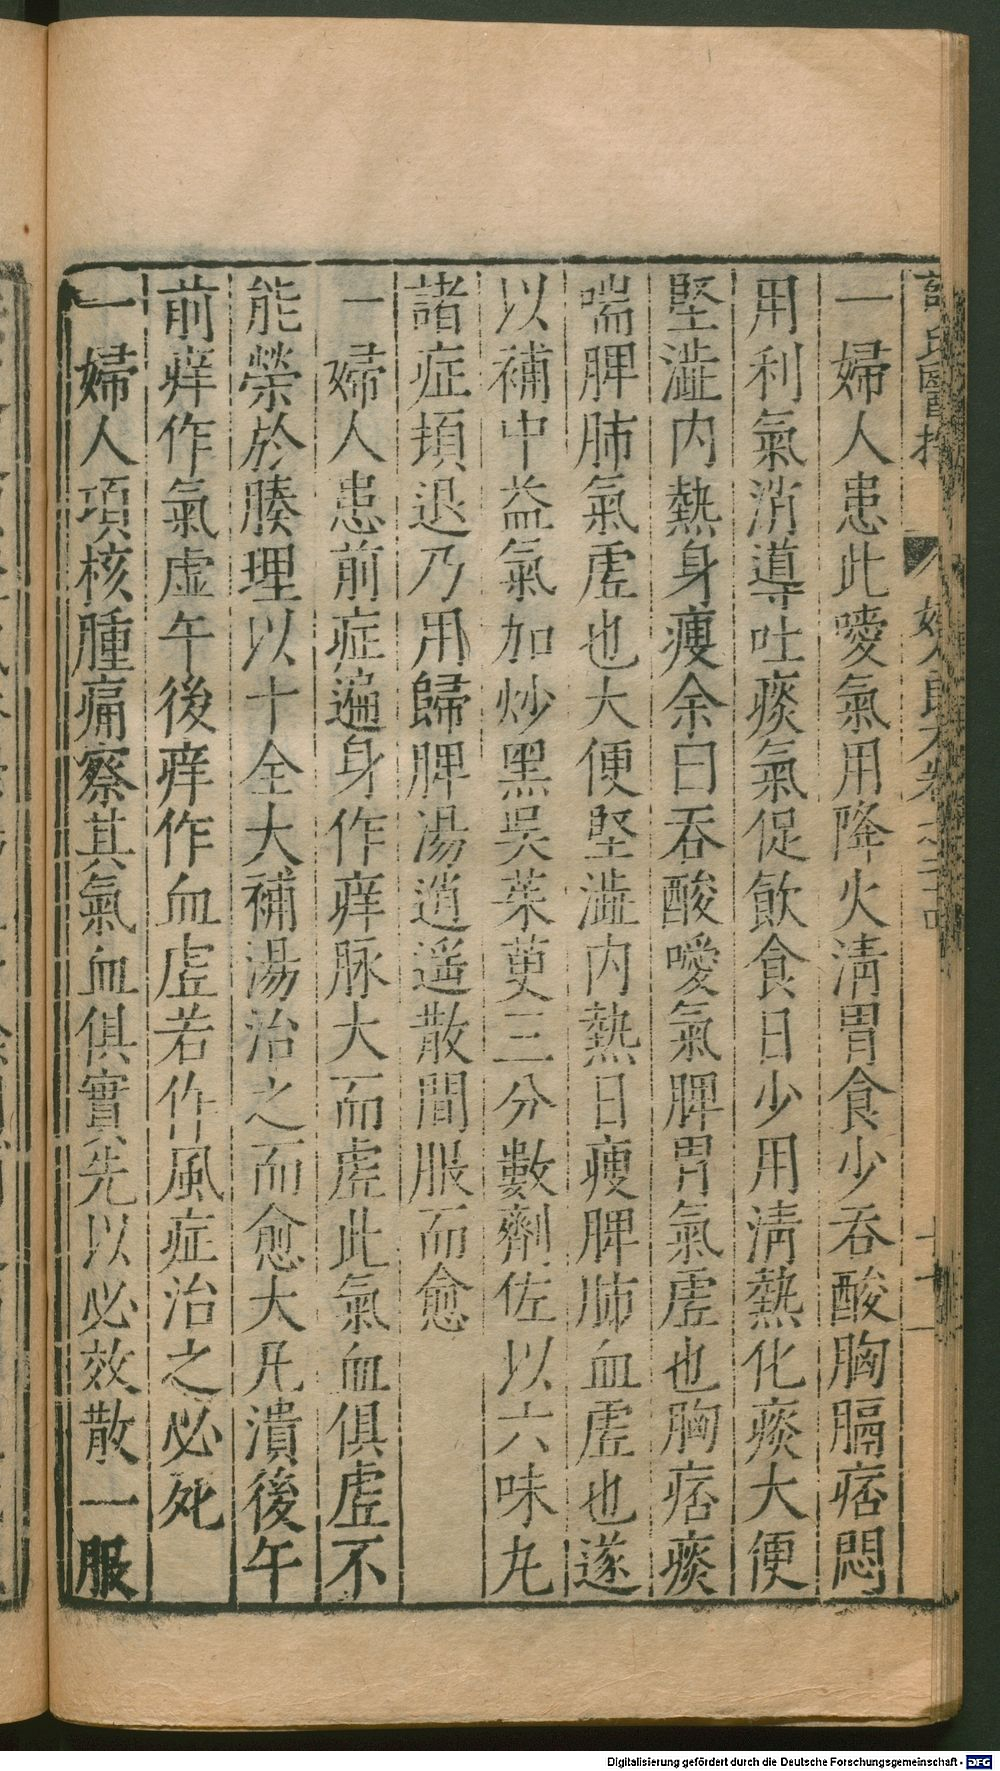 氏醫
婦人良方卷之二十四
十一
一婦人患此噯氣用降火淸胃食少吞酸胸膈痞悶
用利氣消導吐痰氣促飮食日少用淸熱化痰大便
堅澁内熱身瘦余曰吞酸噯氣脾胃氣虛也胸痞痰
喘脾肺氣虛也大便堅澁内熱日瘦脾肺血虛也遂
以補中益氣加炒黑吳茱萸三分數劑佐以六味丸
諸症頓退乃用歸脾湯逍遥散間服而愈
一婦人患前症遍身作痒脉大而虛此氣血俱虛不
能榮於腠理以十全大補湯治之而愈大凡潰後午
前痒作氣虛午後痒作血虛若作風症治之必死
一婦人項核腫痛察其氣血俱實先以必效散一服
Digitalisierung gefördert durch die Deutsche Forschungsgemeinschaft - DFG